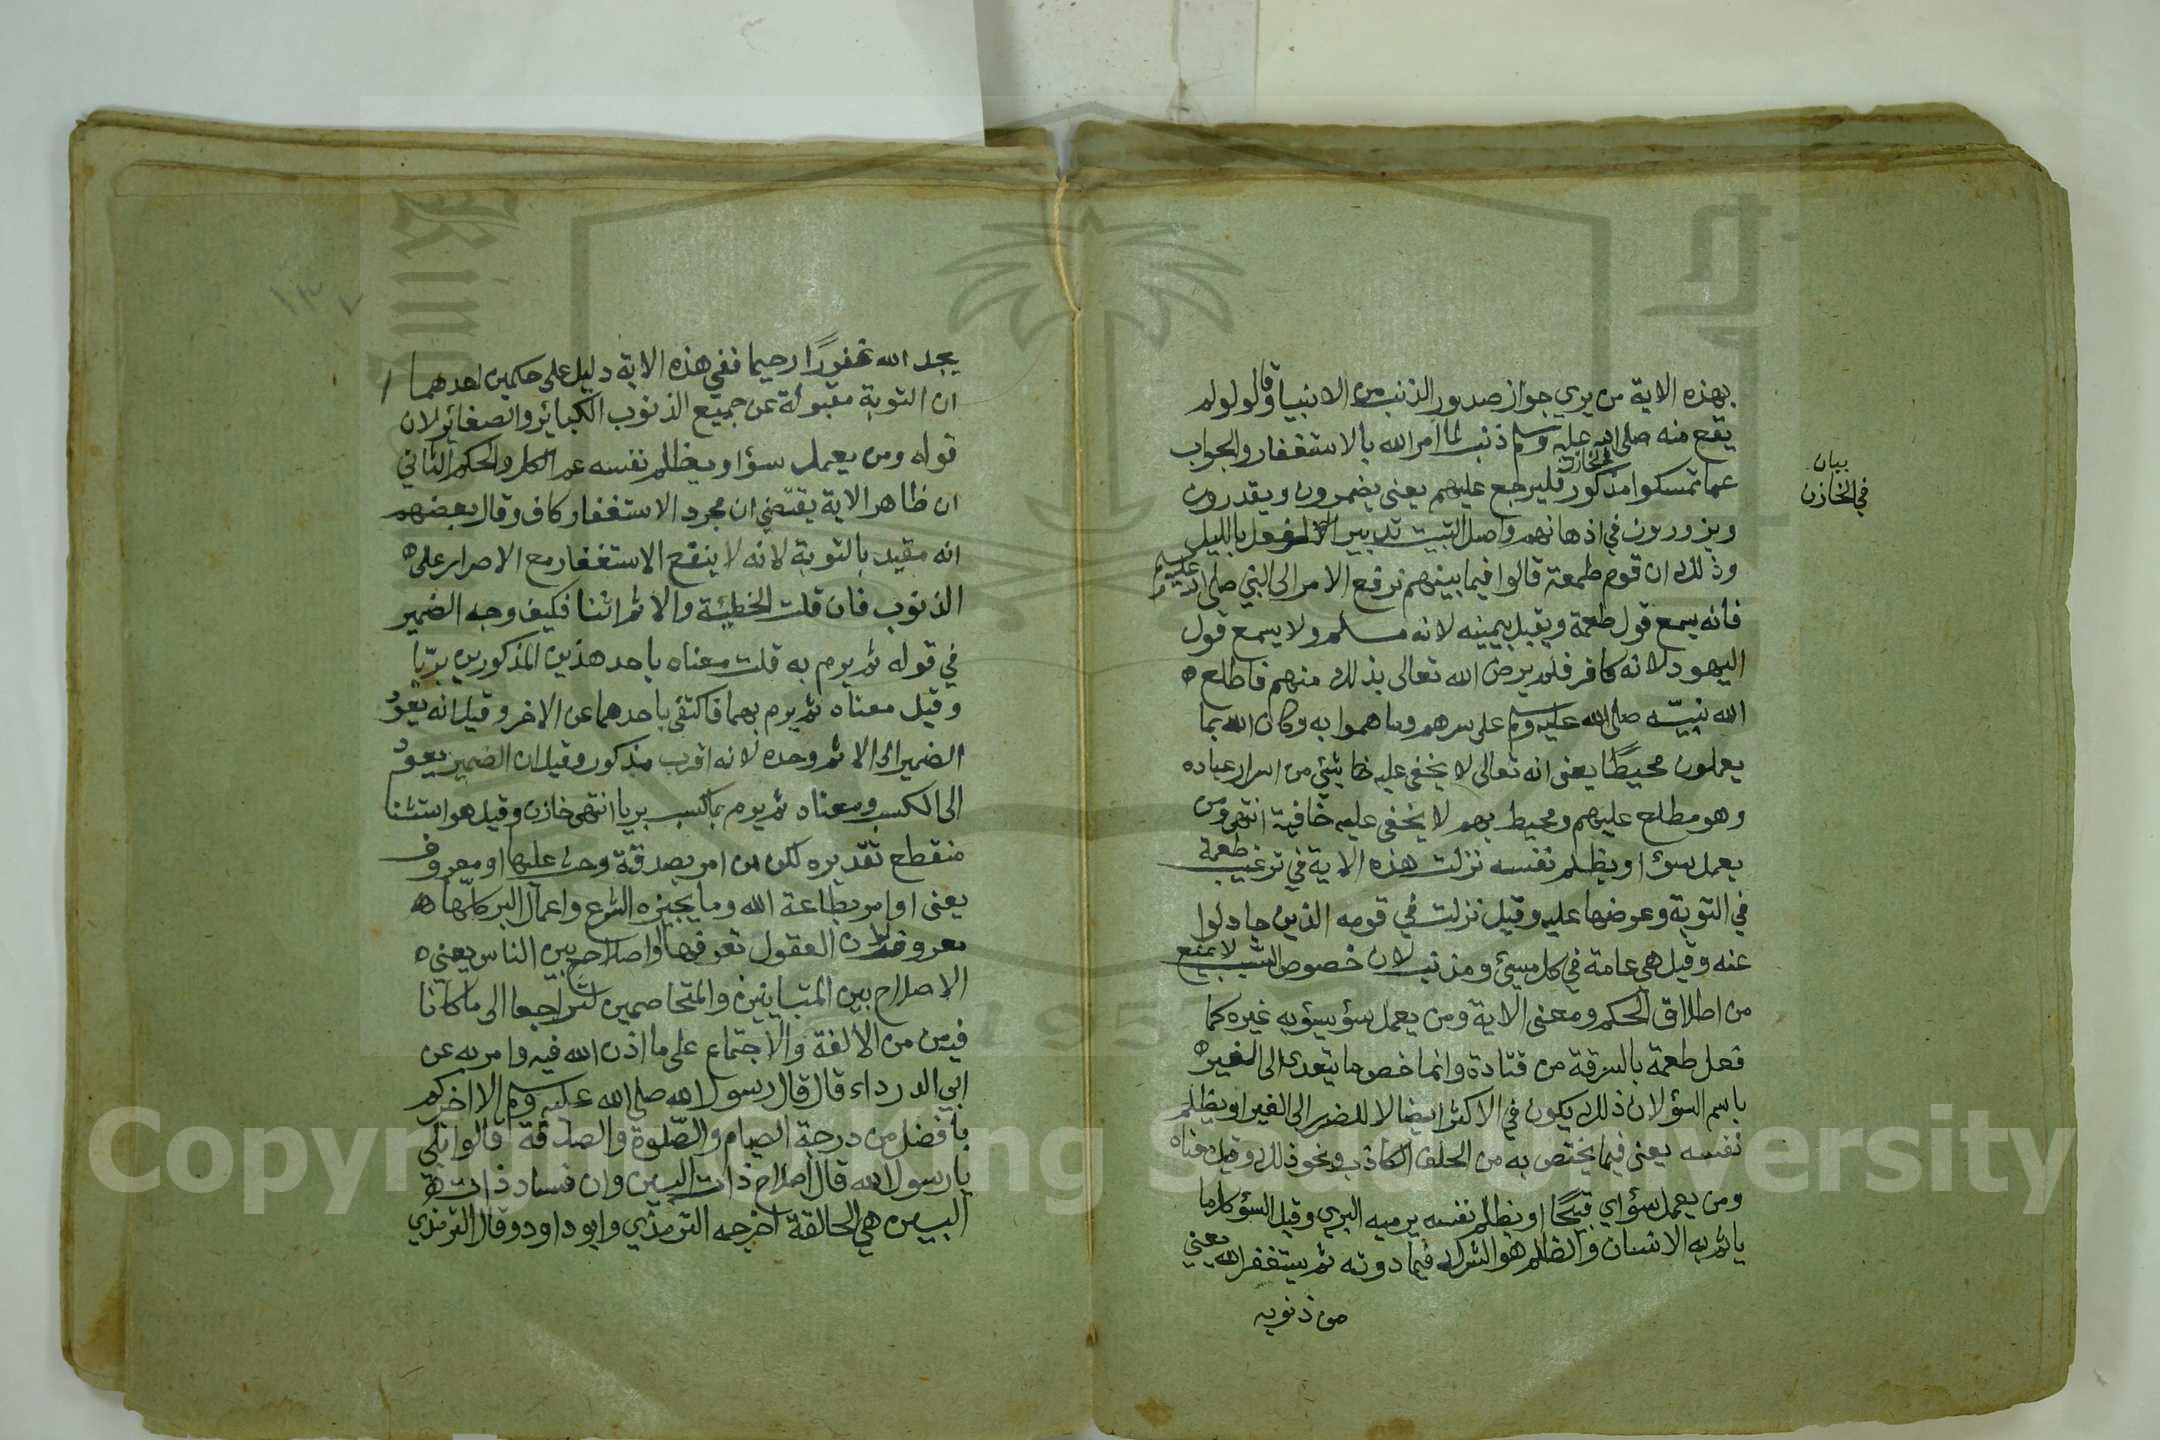 بهذه الاية من يري جواز صدور الذنب من الانبيا وقالو لو لم
يقع منه صلى الله عليه وسلم ذنب لما امر الله بالاستغفار والجواب
عما تمسكوا مذكور في الخازن فليرجع عليهم يعني يضمرون ويقدرون
ويزورون في اذهانهم واصل التبيت تدبير الفعل بالليل
وذلك ان قوم طمعة قالوا فيما بينهم نرفع الامر الى النبي صلى الله عليه وسلم
فانه يسمع قول طعمة ويقبل يمينه لانه مسلم ولا يسمع قول
اليهود لانه كافر فلم يرض الله تعالى بذلك منهم فاطلع
الله نبيّه صلى الله عليه وسلم على سرهم وما هموا به وكان الله بما
يعملون محيطًا يعني انه تعالى لا يخفى عليه شيئ من اسرار عباده
وهو مطلع عليهم ومحيط بهم لا يخفى عليه خافية انتهى ومن
يعمل سؤًا او يظلم نفسه نزلت هذه الاية في ترغيب طعمة
في التوبة وعرضها عليه وقيل نزلت في قومه الذين جادلوا
عنه وقيل هي عامة في كل مسيئ ومذنب لان خصوص السبب لا يمنع
من اطلاق الحكم ومعنى الاية ومن يعمل سؤ يسؤ به غيره كما
فعل طعمة بالسرقة من قتادة وانما خص ما يتعدى الى الغير
باسم السؤ لان ذلك يكون في الاكثر ايضالا للضرر الى الغير او يظلم
نفسه يعني فيما يختص به من الحلف الكاذب ونحو ذلك وقيل معناه
ومن يعمل سؤ اي قبيحًا او يظلم نفسه يرميه البري وقيل السؤ كل ما
ياثم به الانسان والظلم هو الشرك فما دونه ثم يستغفر الله يعني
من ذنوبه
بيان
في الخازن
١٣٧
يجد الله غفورًا رحيما ففي هذه الاية دليل على حكمين احدهما
ان التوبة مقبولة عن جميع الذنوب الكبائر والصغائر لان
قوله ومن يعمل سؤا او يظلم نفسه عم الكل والحكم الثاني
ان ظاهر الاية يقتضي ان مجرد الاستغفار كاف وقال بعضهم
انه مقيد بالتوبة لانه لا ينفع الاستغفار مع الاصرار على
الذنوب فان قلت الخطيئة والاثم اثنا فكيف وجه الضمير
في قوله ثم يرم به قلت معناه باحد هذين المذكورين بريّا
وقيل معناه ثم يرم بهما فاكتفى باحدهما عن الاخر وقيل انه يعود
الضمير الى الاثم وحده لانه اقرب مذكور وقيل ان الضمير يعود
الى الكسب ومعناه ثم يرم بما كسب بريا انتهى خازن وقيل هو استثنا
منقطع تقديره لكن من امر بصدقة وحث عليها او معروف
يعني او امر بطاعة الله وما يجيزه الشرع واعمال البر كلّها
معروف لان العقول تعرفها او اصلاح بين الناس يعني
الاصلاح بين المتباينين والمتخاصمين لتراجعا الى ما كانا
فيه من الالفة والاجتماع على ما اذن الله فيه وامر به عن
ابي الدرداء قال قال رسول الله صلى الله عليه وسلم الا اخركم
بافضل من درجة الصيام والصّلوة والصدقة قالوا بلى
يا رسول الله قال اصلاح ذات البين وان فساد ذات
البين هي الحالقة اخرجه الترمذي وابو داود وقال الترمذي
Copyright © King Saud University